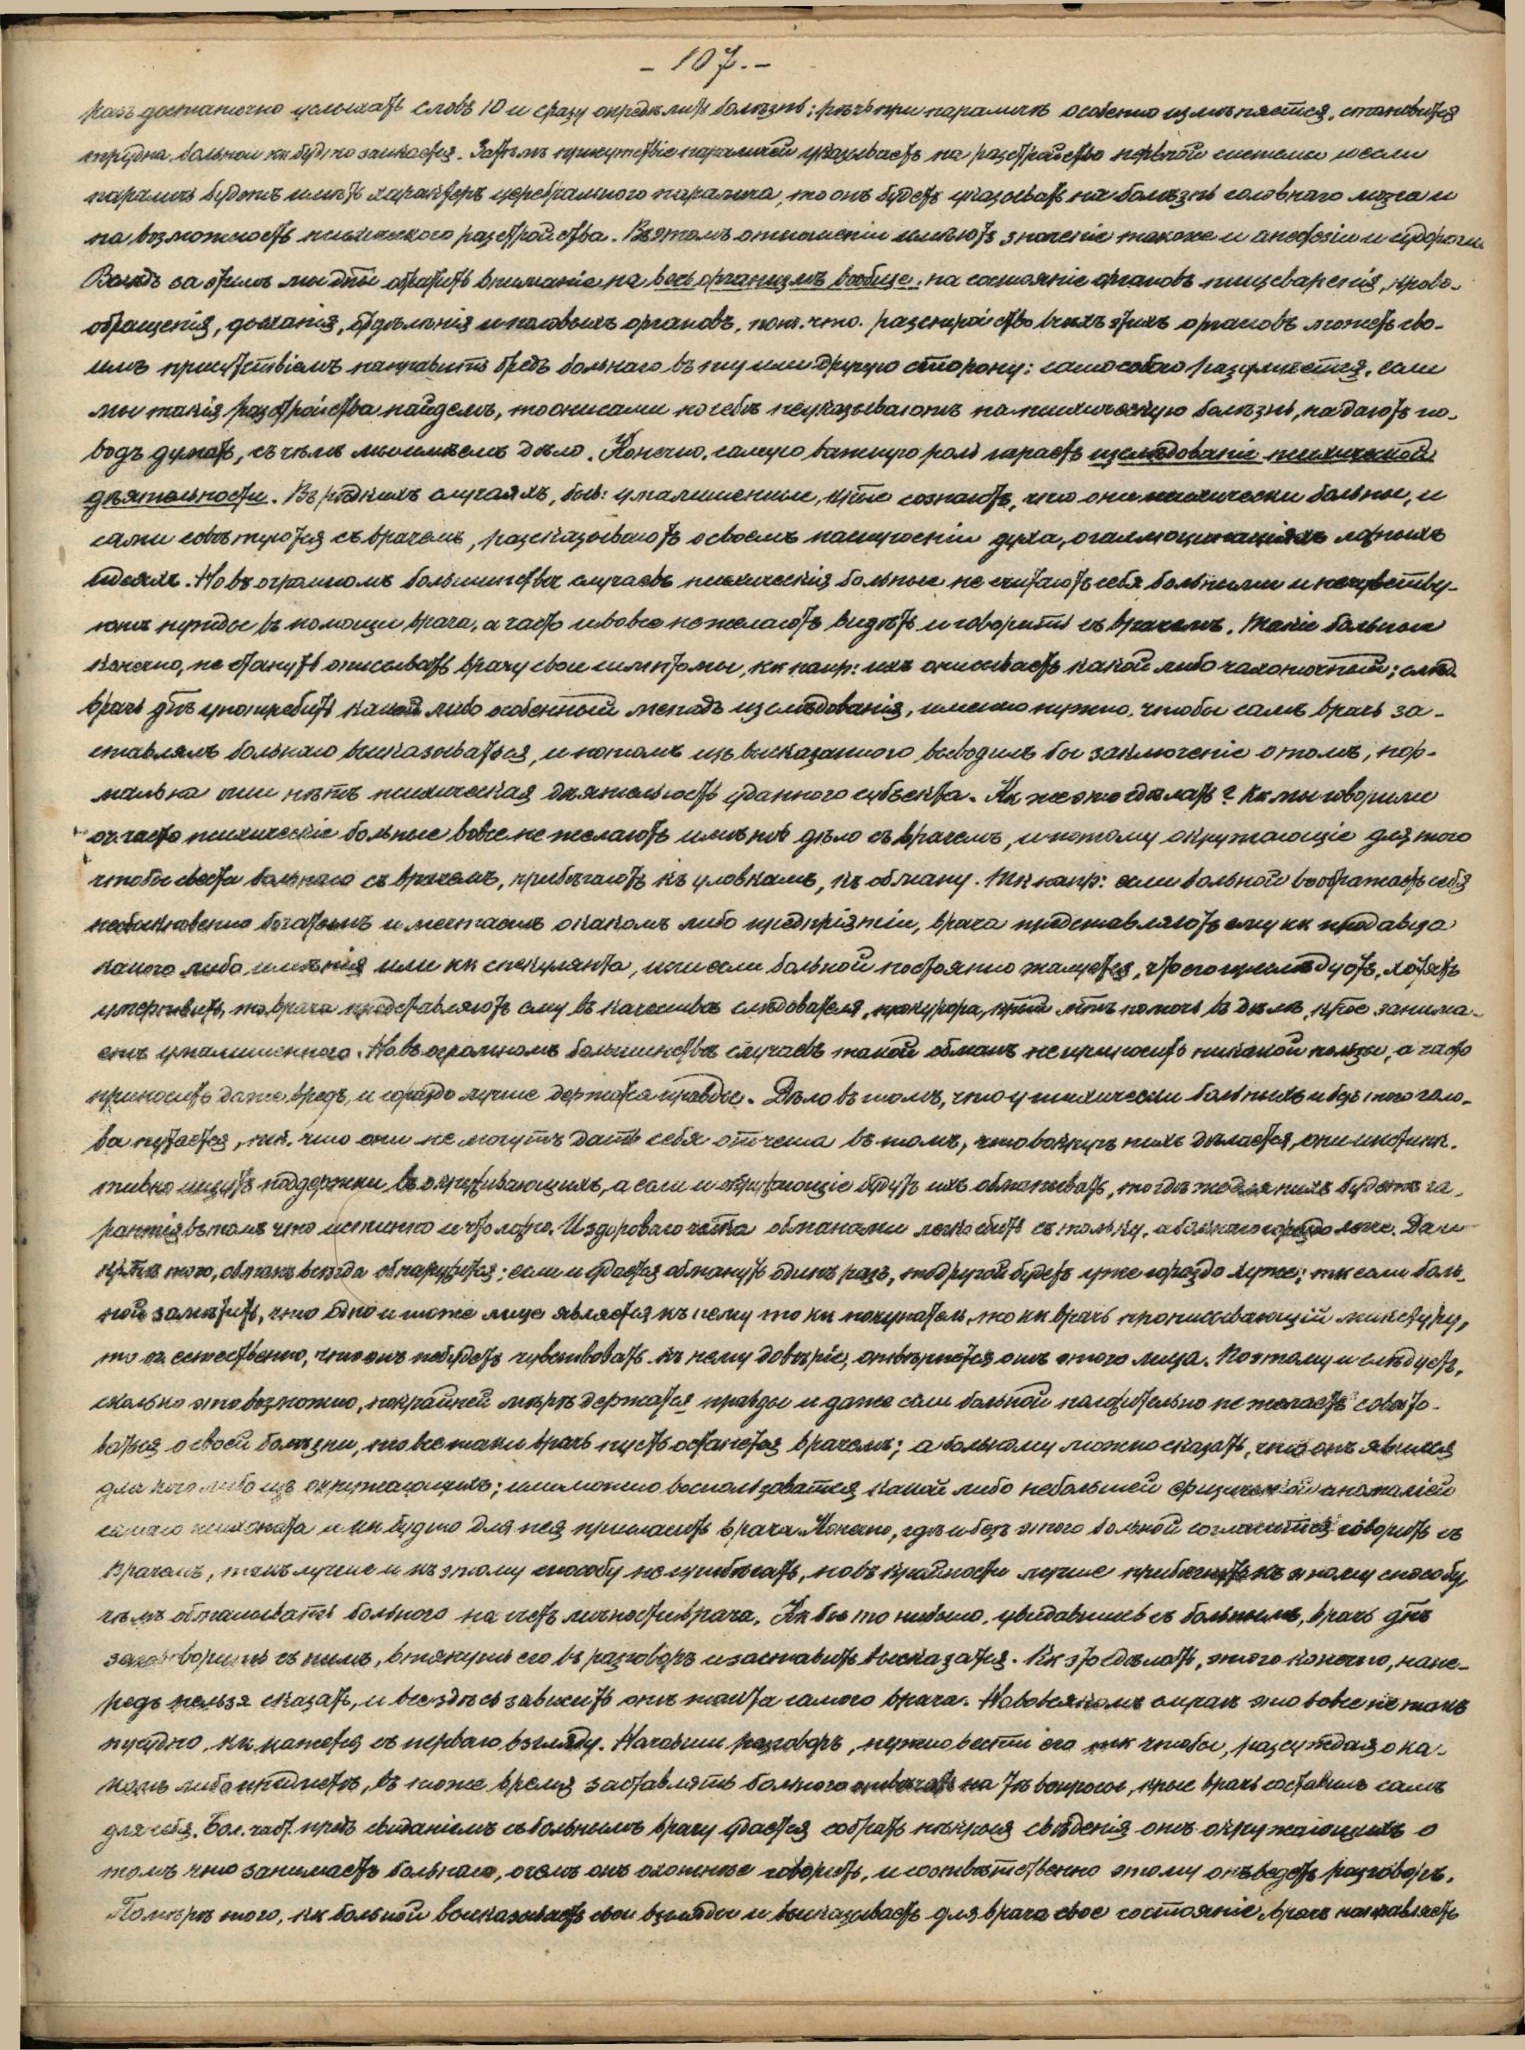 - 107. -
разъ достаточно услыхать словъ 10 и сразу опредѣлить болѣзнь; рѣчь при параличѣ особенно измѣняется, становится
трудна, больной кк будто заикается. Затѣмъ присутствіе параличей указываетъ на разстройство нервной системы и если
параличъ будетъ имѣть характеръ церебральнаго паралича, то онъ будетъ указывать на болѣзнь головнаго мозга и
на возможность психическаго разстройства. Въ этомъ отношеніи имѣютъ значеніе также и анестезіи и судороги.
Вслѣдъ за этимъ мы дны обратить вниманіе на весь организмъ вообще, на состояніе органовъ пищеваренія, крово-
обращенія, дыханія, отдѣленія и половыхъ органовъ, пот. что. разстройство всѣхъ этихъ органовъ можетъ сво-
имъ присутствіемъ направить бредъ больнаго въ ту или другую сторону; само собою разумѣется, если
мы такія разстройства найдемъ, то они сами по себѣ не указываютъ на психическую болѣзнь, но даютъ по-
водъ думать, съ чѣмъ мы имѣемъ дѣло. Конечно, самую важную роль играетъ изслѣдованіе психической
дѣятельности. Въ рѣдкихъ случаяхъ, быв: умалишенные, кртые сознаютъ, что они психически больны, и
сами совѣтуются съ врачемъ, разсказываютъ о своемъ настроеніи духа, о галлюцинаціяхъ ложныхъ
идеяхъ. Но въ огромномъ большинствѣ случаевъ психическія больные не считаютъ себя больными и не чувству-
ютъ нужды въ помощи врача, а часто и вовсе не желаютъ видѣть и говорить съ врачемъ. Такіе больные
конечно, не станутъ описывать врачу свои симптомы, кк напр: ихъ описываетъ какой либо чахоточный; слѣд.
врачъ днъ употребить какой либо особенный методъ изслѣдованія, именно нужно, чтобы самъ врачъ за-
ставлялъ больнаго высказываться, и потомъ изъ высказаннаго выводилъ бы заключеніе о томъ, нор-
мальна или нѣтъ психическая дѣятельность у даннаго субъекта. Кк же это сдѣлать? Кк мы говорили
оч. часто психическіе больные вовсе не желаютъ имѣть дѣло съ врачемъ, и потому окружающіе для того
чтобы свести больнаго съ врачемъ, прибѣгаютъ къ уловкамъ, къ обману. Тк напр: если больной воображаетъ себя
необыкновенно богатымъ и мечтаетъ о какомъ либо предпріятіи, врача представляютъ ему кк продавца
какого либо имѣнія или кк спекулянта, или если больной постоянно жалуется, что его преслѣдуютъ, хотятъ
умертвить, то врача представляютъ ему въ качествѣ слѣдователя, прокурора, кртый мтъ помочь въ дѣлѣ, кртое занима-
етъ умалишеннаго. Но въ огромномъ большинствѣ случаевъ такой обманъ не приноситъ никакой пользы, а часто
приноситъ даже вредъ, и гораздо лучше держаться правды. Дѣло въ томъ, что у психически больныхъ и безъ того голо-
ва путается, тк. что они не могутъ дать себѣ отчета въ томъ, что вокругъ нихъ дѣлается, они инстинк-
тивно ищутъ поддержки въ окруживающихъ, а если и окружающіе будутъ ихъ обманывать, то гдѣ же для нихъ будетъ га-
рантія въ томъ что истинно и что ложно. И здороваго члвка обманами легко сбить съ толку, а больнаго гораздо легче. Да и
кртомѣ того, обманъ всегда обнаружится; если и удастся обмануть одинъ разъ, то другой будетъ уже гораздо хуже; тк если боль-
ной замѣтитъ, что одно и тоже лице является къ нему то кк покупатель, то кк врачъ прописывающій микстуру,
то оч. естественно, что онъ не будетъ чувствовать къ нему довѣріе, отвернется отъ этого лица. Поэтому и слѣдуетъ,
сколько это возможно, по крайней мѣрѣ держаться правды и даже если больной положительно не желаетъ совѣто-
ваться о своей болѣзни, то все таки врачъ пусть останется врачемъ; а больному можно сказать, что онъ явился
для кого либо изъ окружающихъ; или можно воспользоваться какой либо небольшей физической аномаліей
самаго психопата и кк будто для нея приглашать врача. Конечно, гдѣ и безъ этого больной согласится говорить съ
врачемъ, тамъ лучше и къ этому способу не прибѣгать, но въ крайности лучше прибѣгнуть къ этому способу,
чѣмъ обманывать больнаго на счетъ личности врача. Кк бы то ни было, увидавшись съ больнымъ, врачъ днъ
заговорить съ нимъ, втянуть его въ разговоръ и заставить высказаться. Кк это сдѣлать, этого конечно, напе-
редъ нельзя сказать, и все здѣсь зависитъ отъ такта самого врача. Но во всякомъ случаѣ это вовсе не такъ
трудно, кк кажется съ перваго взгляду. Начавши разговоръ, нужно вести его тк чтобы, разсуждая о ка-
комъ либо предметѣ, въ тоже время заставлять больнаго отвѣчать на тѣ вопросы, кртые врачъ составилъ самъ
для себя. Бол. част. предъ свиданіемъ съ больнымъ врачу удается собрать нѣкртыя свѣденія отъ окружающихъ о
томъ что занимаетъ больнаго, о чемъ онъ охотнѣе говоритъ, и соотвѣтственно этому онъ ведетъ разговоръ.
По мѣрѣ того, кк больной высказываетъ свои взгляды и высказываетъ для врача свое состояніе, врачъ направляетъ